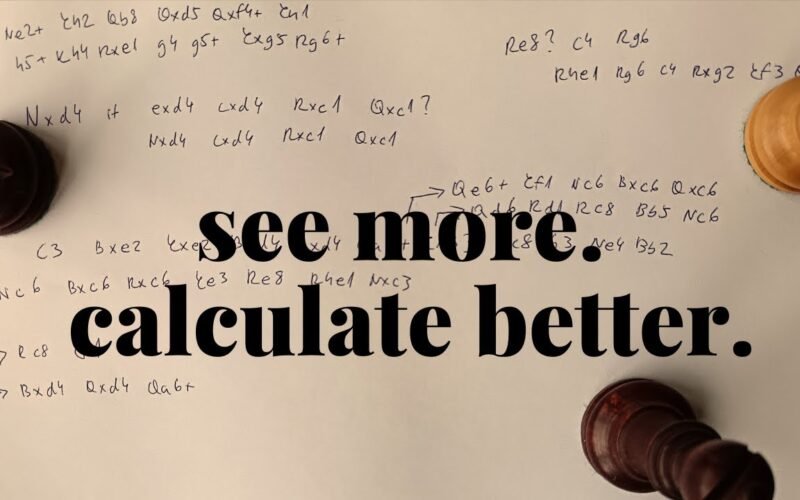 Ne2+ Kh2 Qb8 Qxd5 Qxf4+ Kh1
h5+ Kh4 Rxe1 g4 g5+ Kxg5 Rg6+
Re8? c4 Rg6
Rhe1 Rg6 c4 Rxg2 Kf3
Nxd4 if exd4 cxd4 Rxc1 Qxc1?
Nxd4 cxd4 Rxc1 Qxc1
Qe6+ Kf1 Nc6 Bxc6 Qxc6
Rd1 Rc8 Bb5 Nc6
see more.
c3 Bxe2 Kxe2 Ne4 Bb2
Nc6 Bxc6 Rxc6 Ke3 Re8 Rhe1 Nxc3
calculate better.
Rc8
Bxd4 Qxd4 Qa6+